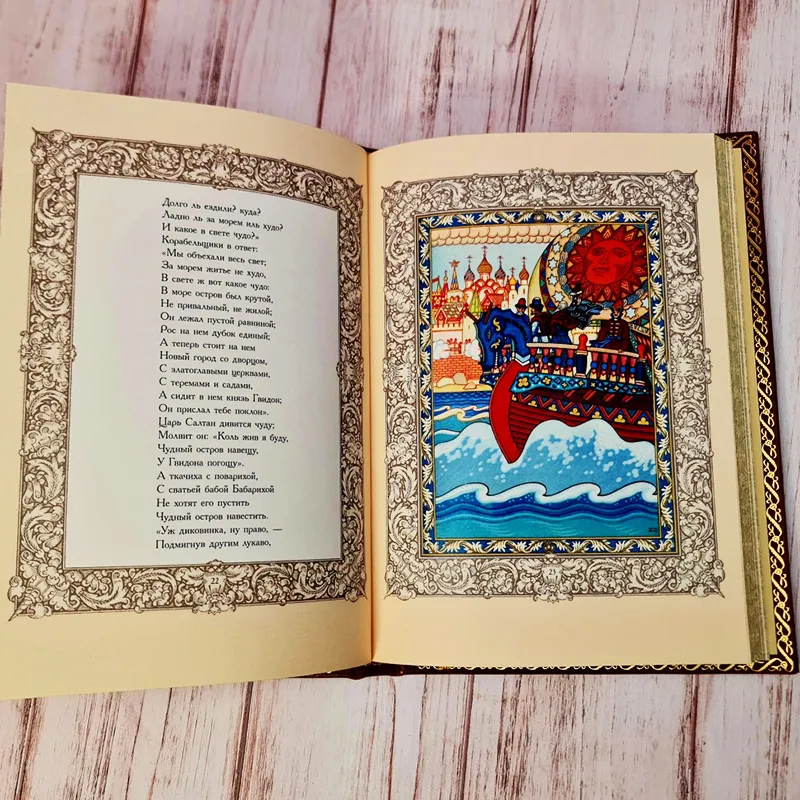 Долго ль ездили? куда?
Ладно ль за морем иль худо?
И какое в свете чудо?»
Корабельщики в ответ:
«Мы объехали весь свет;
За морем житье не худо,
В свете ж вот какое чудо:
В море остров был крутой,
Не привальный, не жилой;
Он лежал пустой равниной;
Рос на нем дубок единый;
А теперь стоит на нем
Новый город со дворцом,
С златоглавыми церквами,
С теремами и садами,
А сидит в нем князь Гвидон;
Он прислал тебе поклон».
Царь Салтан дивится чуду;
Молвит он: «Коль жив я буду,
Чудный остров навещу,
У Гвидона погощу».
А ткачиха с поварихой,
С сватьей бабой Бабарихой
Не хотят его пустить
Чудный остров навестить.
«Уж диковинка, ну право, —
Подмигнув другим лукаво,
22
23